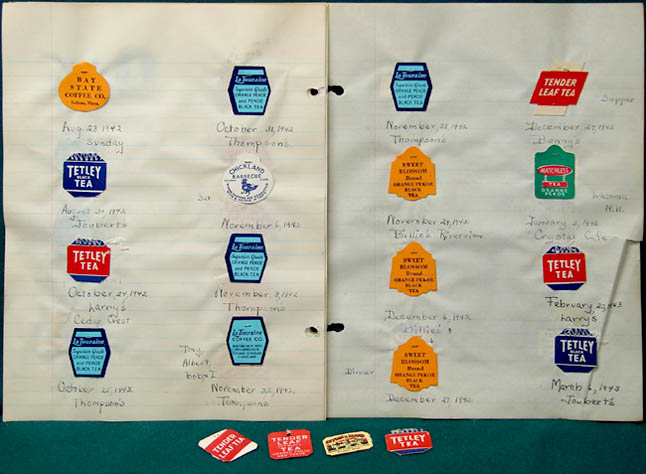 BAY
STATE
COFFEE CO.
Aug 23, 1942
Sunday
La Touraine
Superior Grade
ORANGE PEKOE
and PEKOE
BLACK TEA
October 31, 1942
Thompson's
TETLEY
BLACK
TEA
August 31, 1942
Joubert's
CHICKLAND
BARBECUE
November 6, 1942
TETLEY
TEA
October 24, 1942
Larry's
Cedar Crest
La Touraine
Superior Grade
ORANGE PEKOE
and PEKOE
BLACK TEA
November 8, 1942
Thompson's
La Touraine
Superior Grade
ORANGE PEKOE
and PEKOE
BLACK TEA
October 25, 1942
Thompson's
La Touraine
COFFEE CO.
Tony
Albert
November 22, 1942
Thompson's
La Touraine
Superior Grade
ORANGE PEKOE
and PEKOE
BLACK TEA
November 28, 1942
Thompson's
TENDER
LEAF TEA
Supper
December 27, 1942
SWEET
BLOSSOM
Brand
ORANGE PEKOE
BLACK
TEA
November 29, 1942
Billie's Riverview
MATCHLESS
TEA
ORANGE
PEKOE
Laconia
N.H.
January 2, 1943
Crystal Cafe
SWEET
BLOSSOM
Brand
ORANGE PEKOE
BLACK
TEA
December 6, 1942
Billie's
TETLEY
TEA
February 23, 1943
Larry's
SWEET
BLOSSOM
Brand
ORANGE PEKOE
BLACK
TEA
Dinner
December 27, 1942
TETLEY
BLACK
TEA
March 6, 1943
Joubert's
TENDER
LEAF TEA
TENDER
LEAF
TEA
TETLEY
TEA